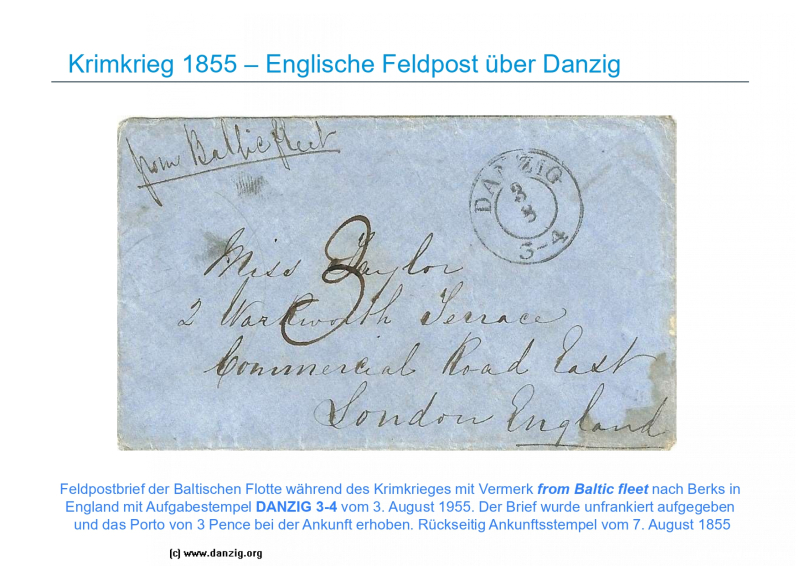 Krimkrieg 1855 – Englische Feldpost über Danzig
from Baltic fleet
DANZIG
3
8
3-4
3
Miss Taylor
2 Warkworth Terrace
Commercial Road East
London England
Feldpostbrief der Baltischen Flotte während des Krimkrieges mit Vermerk from Baltic fleet nach Berks in
England mit Aufgabestempel DANZIG 3-4 vom 3. August 1955. Der Brief wurde unfrankiert aufgegeben
und das Porto von 3 Pence bei der Ankunft erhoben. Rückseitig Ankunftsstempel vom 7. August 1855
(c) www.danzig.org